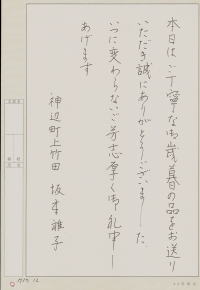 本日はご丁寧な御歳暮の品をお送り
いただき誠にありがとうございました。
いつに変わらないご芳志厚く御礼申し
あげます
神辺町上竹田 坂本雅子